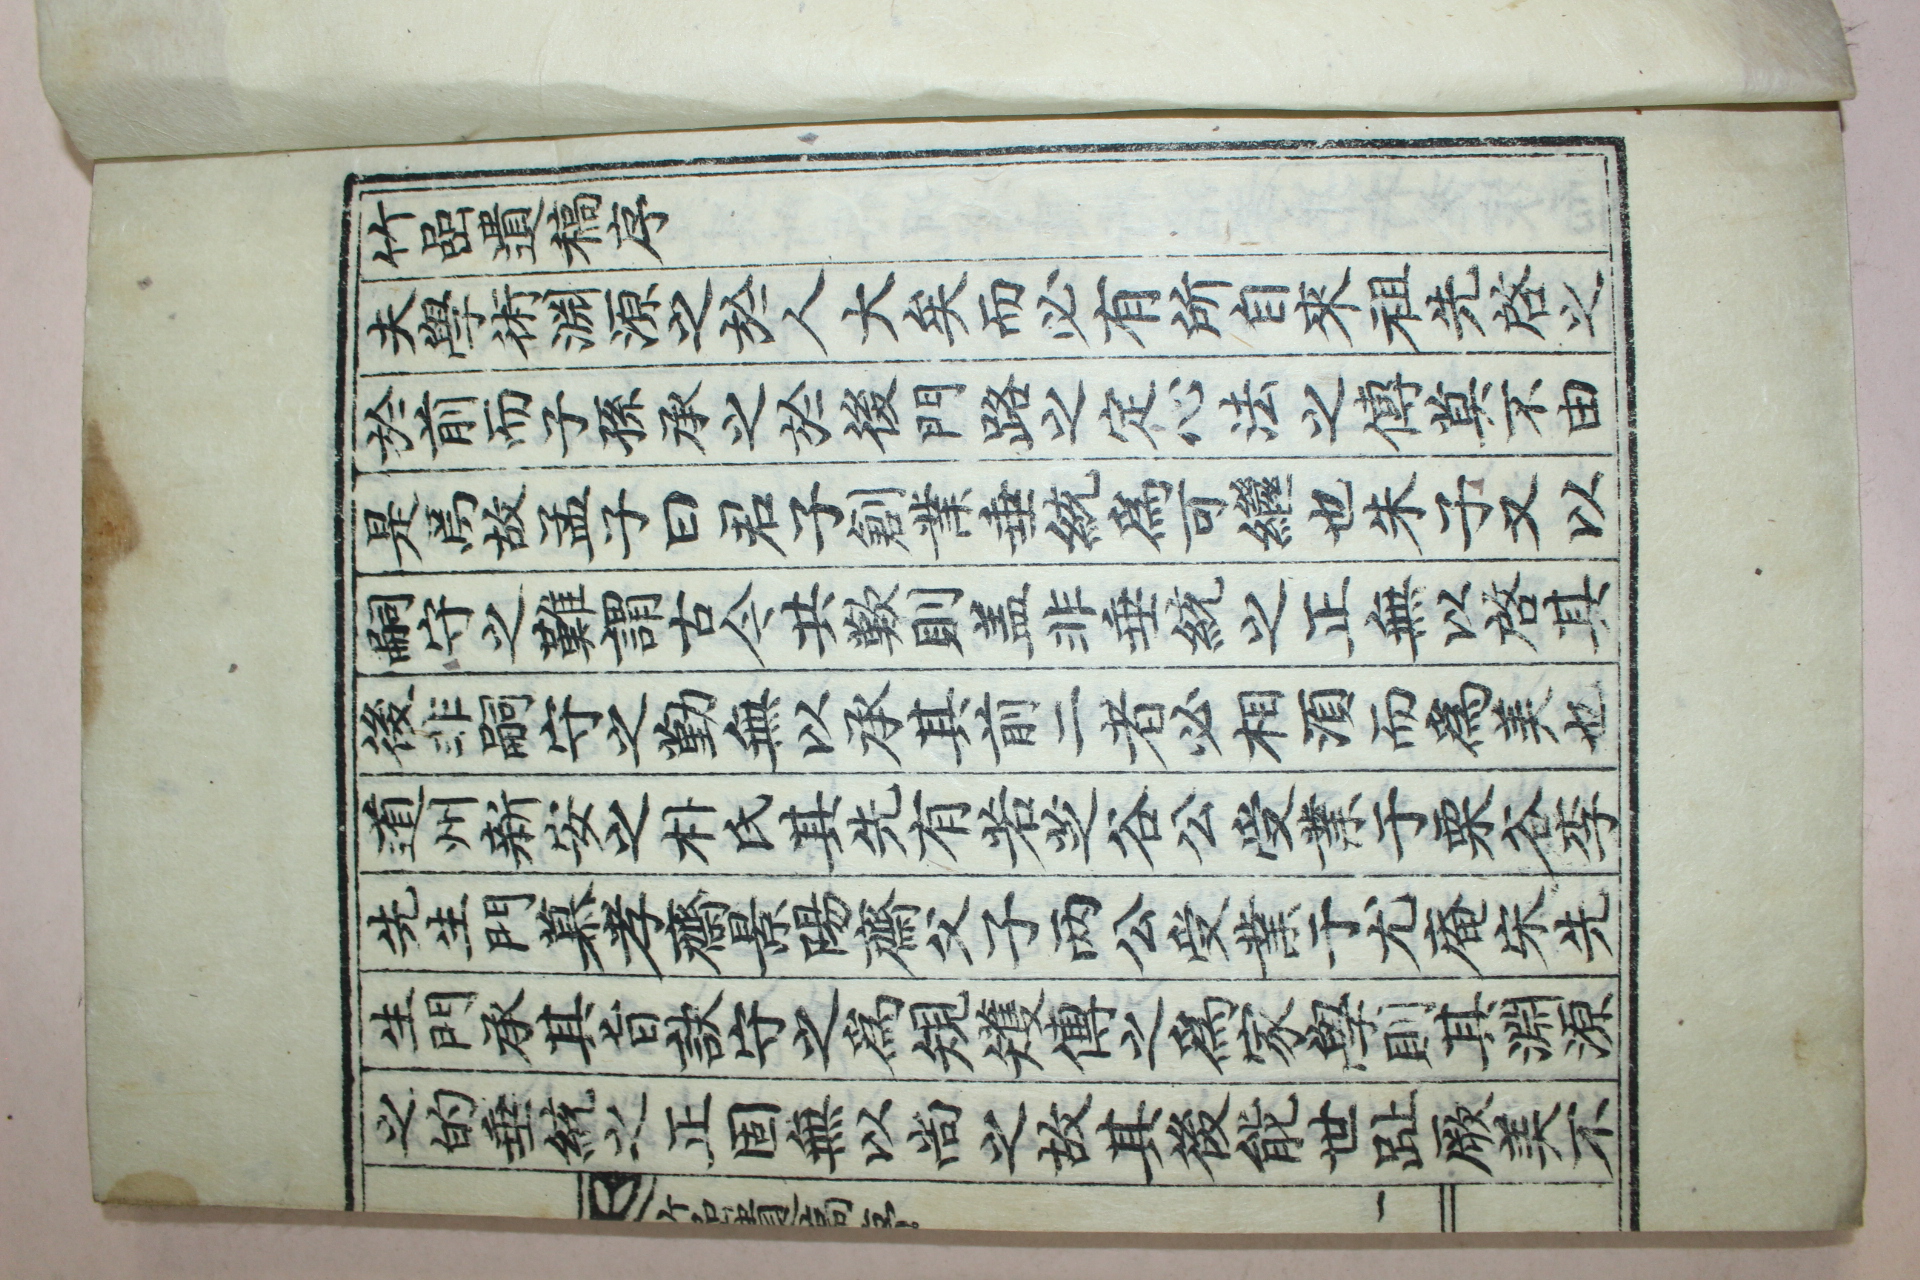 竹嵒遺稿序
夫學術淵源之於人大矣而必有所自來祖先啓之
於前而子孫承之於後門路之定心法之傳莫不由
是焉故孟子曰君子創業垂統爲可繼也朱子又以
嗣守之難謂古今共歎則盖非垂統之正無以啓其
後非嗣守之勤無以承其前二者必相須而爲美也
道州新安之朴氏其先有若芝谷公受業于栗谷李
先生門慕孝齋景陽齋父子两公受業于尤庵宋先
生門承其旨訣守之爲規矱傳之爲家學則其淵源
之的垂統之正固無以尚之故其後能世趾厥美不
竹嵒遺稿序
一